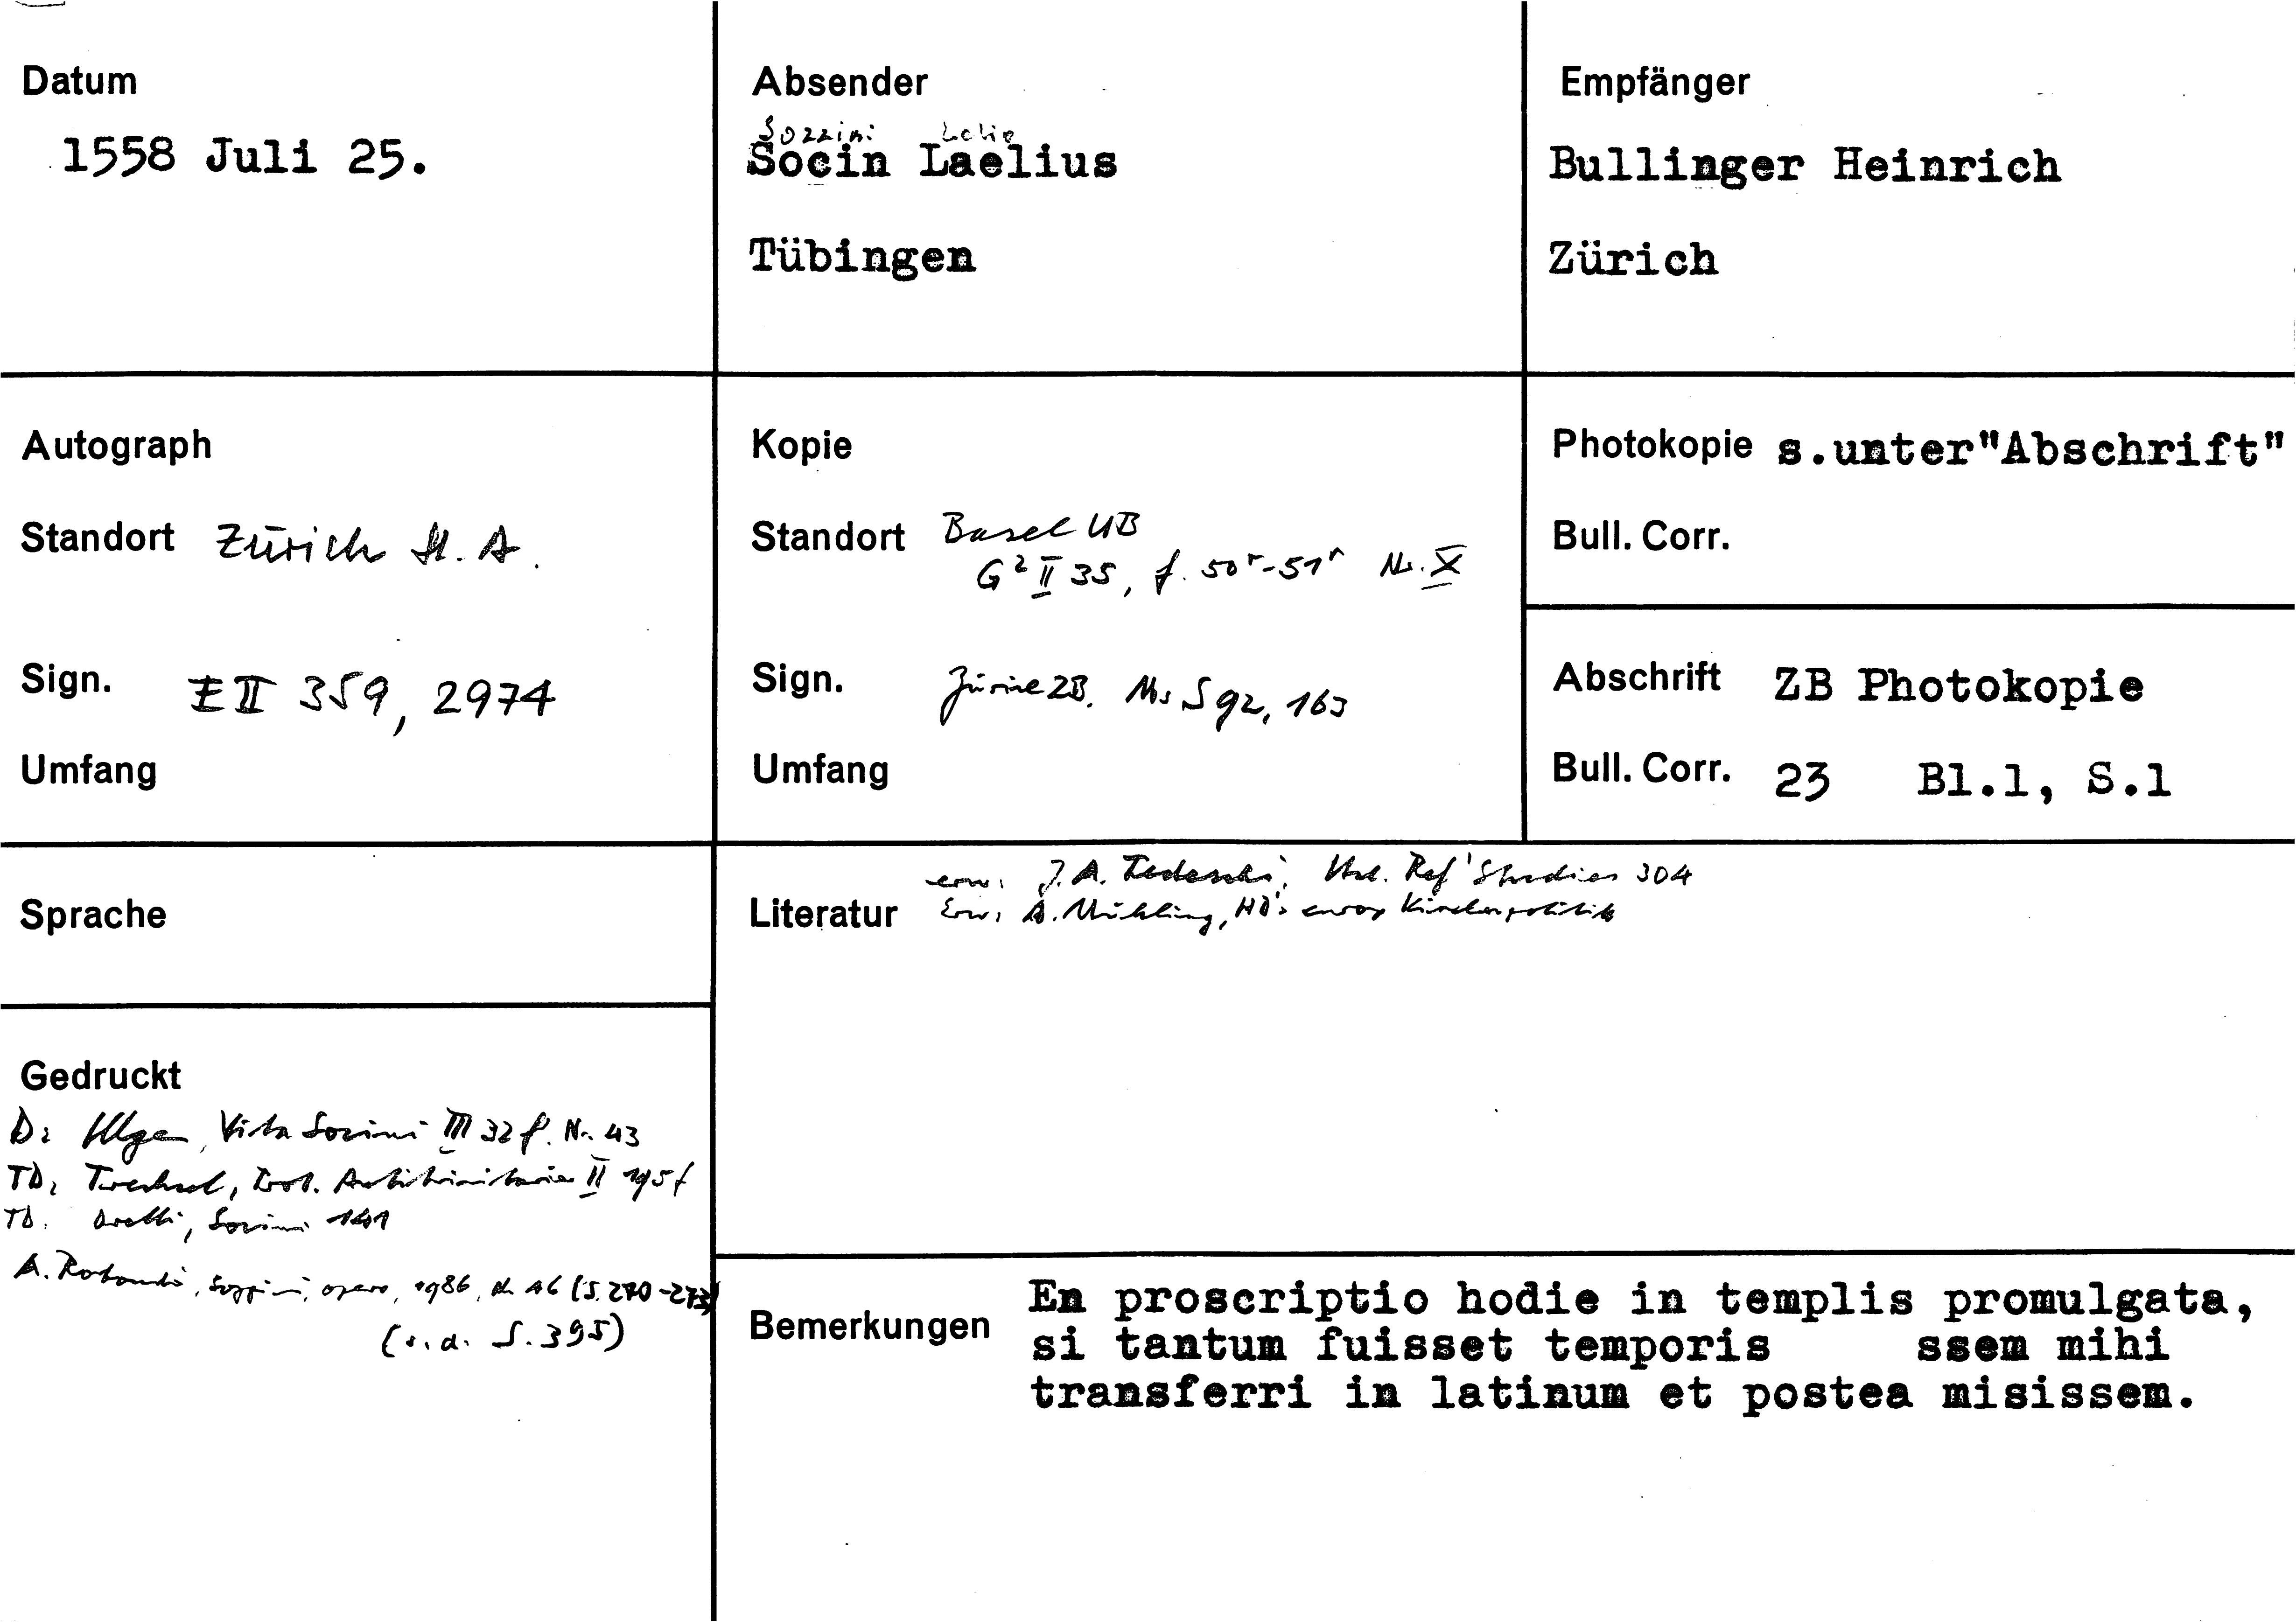 Datum
1558 Juli 25.
Absender
Sozzini Lelio
Socin Laelius
Tübingen
Empfänger
Bullinger Heinrich
Zürich
Autograph
Standort Zürich St. A.
Sign. E II 359, 2974
Umfang
Kopie
Standort Basel UB
G² II 35, f. 50r-51r Nr. X
Sign. Zürich ZB. Ms S 92, 163
Umfang
Photokopie s.unter"Abschrift"
Bull. Corr.
Abschrift ZB Photokopie
Bull. Corr. 23 Bl.1, S.1
Sprache
erw. J. A. Tedeschi, Ital. Ref' Studies 304
Literatur Erw. A. Mühling, HB's europ Kirchenpolitik
Gedruckt
D: Illgen, Vita Socini III 32 f. Nr. 43
TD: Trechsel, Prot. Antitrinitarier II 195f
TD. Orelli, Socini 141
A. Rotondò, Sozzini, opere, 1986, Nr. 46 (S. 270-273)
(s. a. S. 395)
Bemerkungen En proscriptio hodie in templis promulgata,
si tantum fuisset temporis ssem mihi
transferri in latinum et postea misissem.